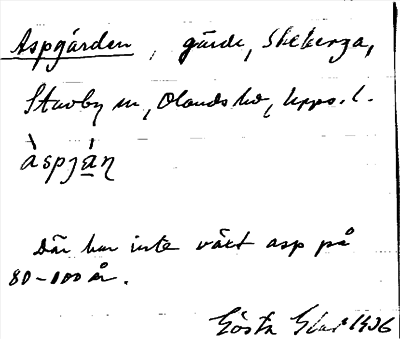 Aspgärden, gärde, Skeberga,
Stavby sn, Olands hd, Upps. l.
àspjá̱n
Där har inte växt asp på
80-100 år.
Gösta 1936